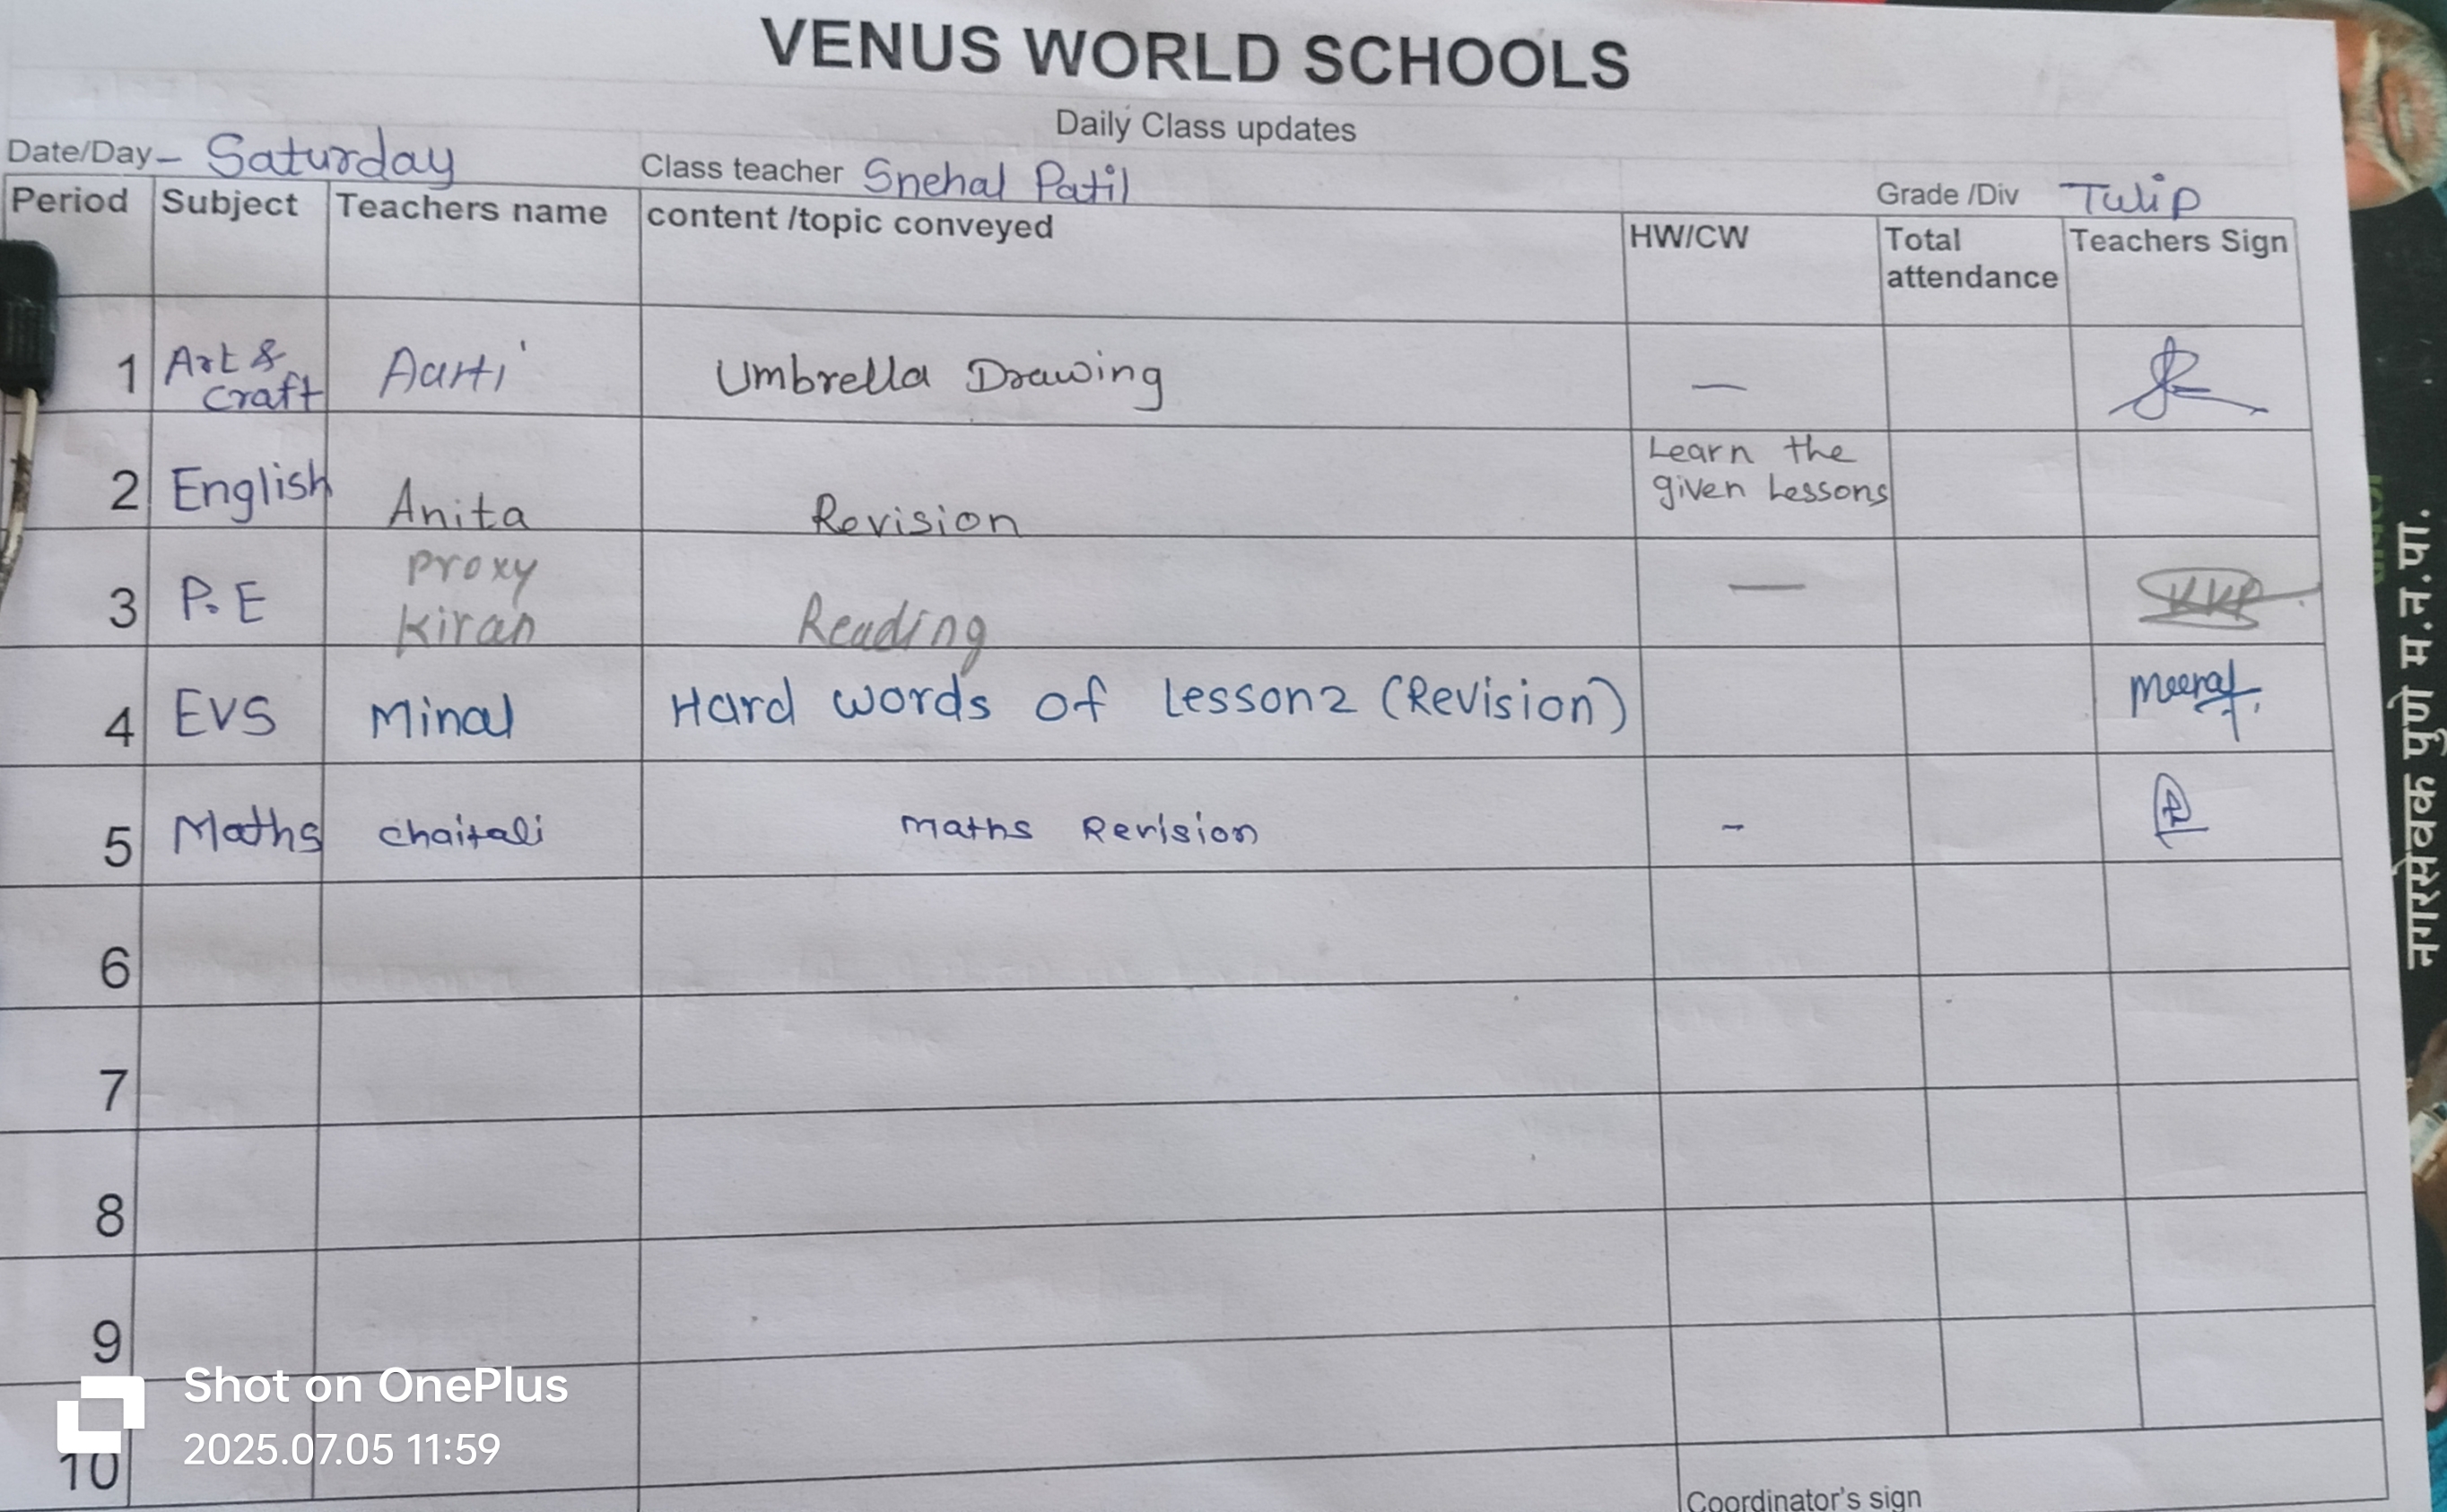 VENUS WORLD SCHOOLS
Daily Class updates
Date/Day - Saturday Class teacher Snehal Patil Grade /Div Tulip
Period Subject Teachers name content /topic conveyed HW/CW Total attendance Teachers Sign
1 Art & Craft Aarti Umbrella Drawing —
2 English Anita Revision Learn the given Lessons
3 P.E Proxy Kiran Reading —
4 EVS Minal Hard words of Lesson2 (Revision)
5 Maths chaitali maths Revision -
6
7
8
9
10
Coordinator's sign
Shot on OnePlus
2025.07.05 11:59